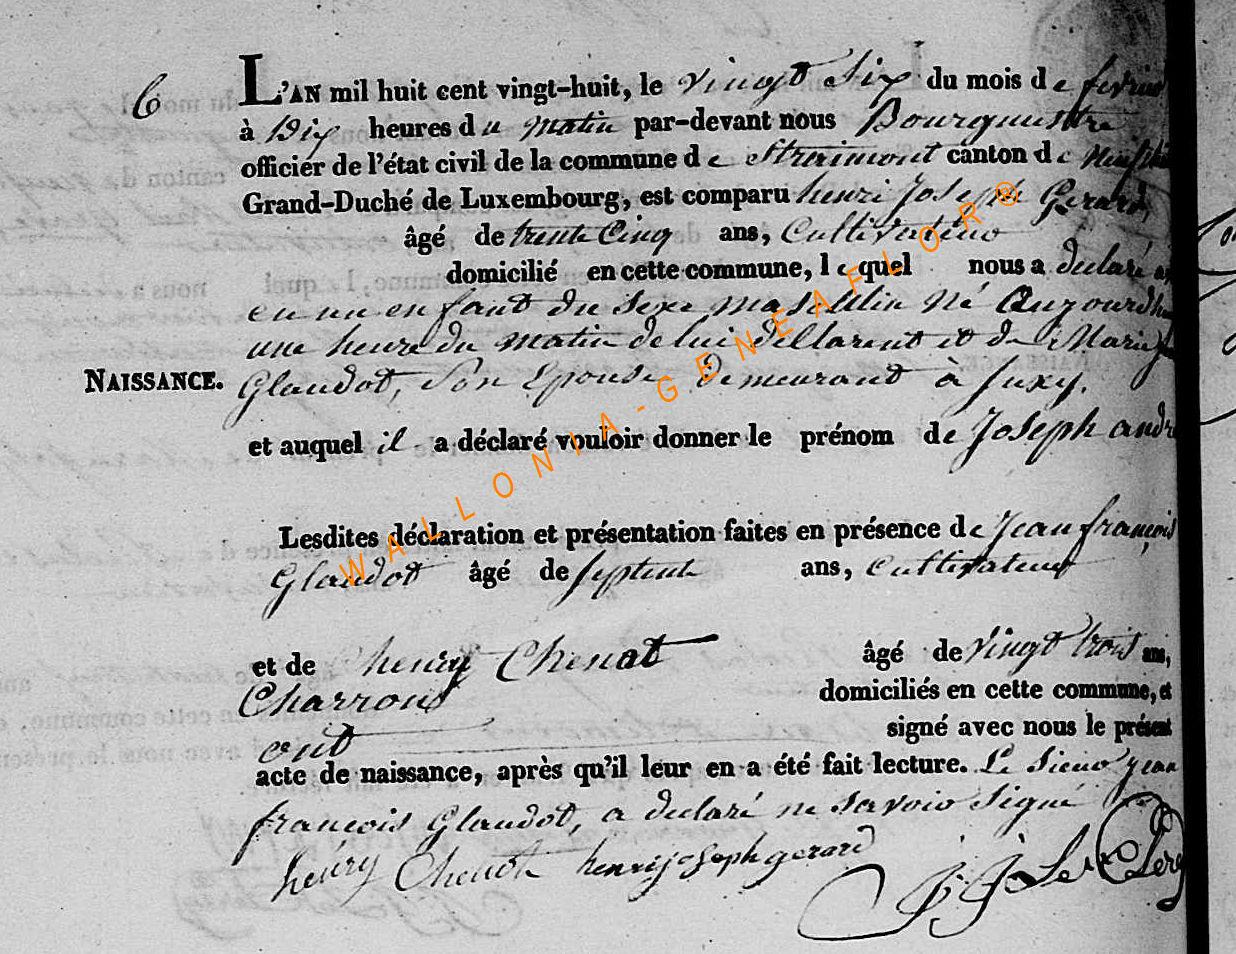 6
L'AN mil huit cent vingt-huit, le vingt Six du mois de fevrier
à Dix heures du matin par-devant nous Bourguestre
officier de l'état civil de la commune de Straimont canton de
Grand-Duché de Luxembourg, est comparu henri Joseph Gerard,
âgé de trente Cinq ans, Cultivateur
domicilié en cette commune, lequel nous a declaré
eu un enfant du sexe masculin Né Aujourdhui
une heure du matin de lui dellarent et de Marie
NAISSANCE.
Glaudot, Son Epouse Demeurant à Suxy.
et auquel il a déclaré vouloir donner le prénom de Joseph andré
Lesdites déclaration et présentation faites en présence de Jean françois
Glaudot âgé de septente ans, Cultivateur
et de henry Chenot âgé de Vingt trois ans,
Charrons domiciliés en cette commune, et
ont signé avec nous le présent
acte de naissance, après qu'il leur en a été fait lecture. Le Sieur jean
françois Glaudot, a declaré ne savoir Signé
henry Chenot henri joseph gerard
WALLONIA-GENEAFLOR®